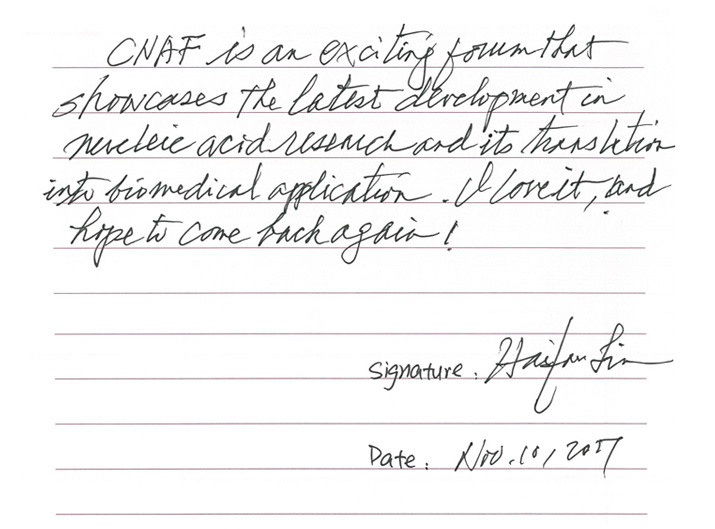 CNAF is an exciting forum that
showcases the latest development in
nucleic acid research and its translation
into biomedical application. I love it, and
hope to come back again!
Signature: Haifan Lin
Date: Nov. 10, 2017